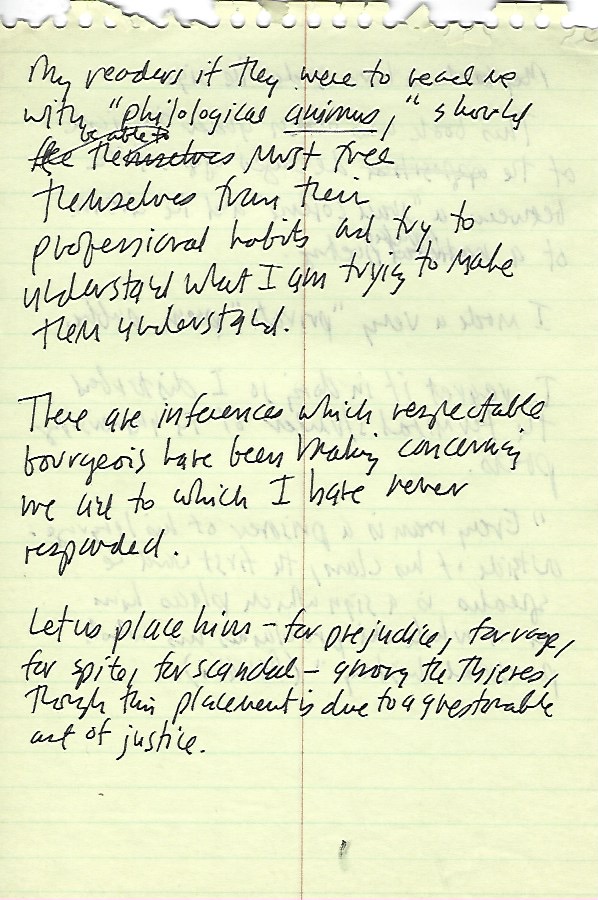 My readers if they were to read us
with "philological animus," should
be able to
free themselves must free
themselves from their
professional habits and try to
understand what I am trying to make
them understand.
There are inferences which respectable
bourgeois have been making concerning
me and to which I have never
responded.
Let us place him – for prejudice, for rage,
for spite, for scandal – among the thieves,
though this placement is due to a questionable
act of justice.